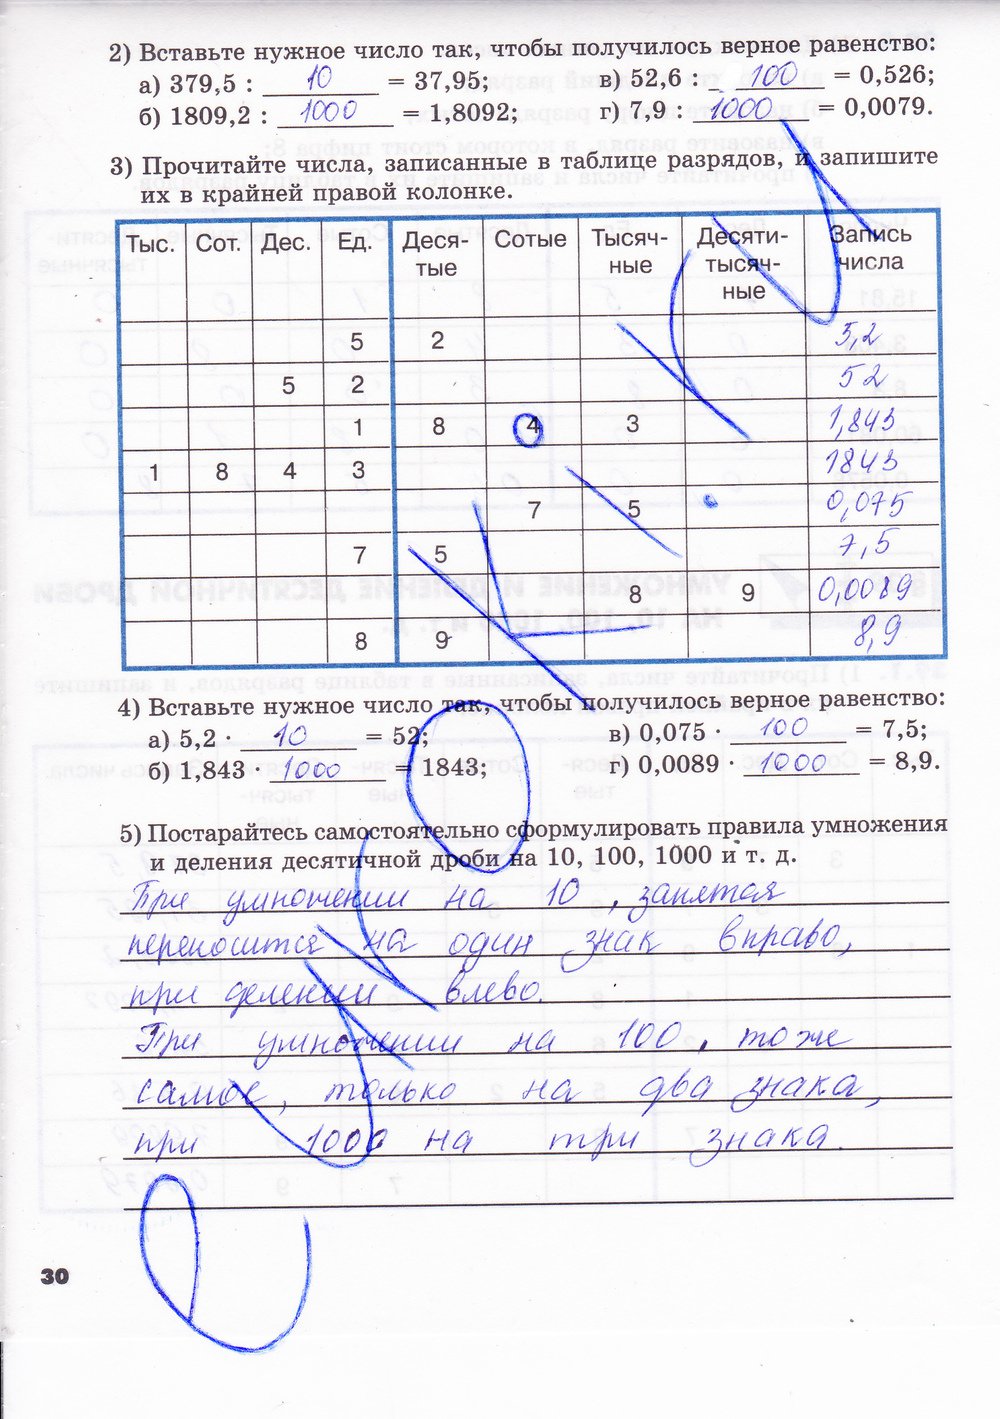 2) Вставьте нужное число так, чтобы получилось верное равенство:
а) 379,5 : 10 = 37,95; в) 52,6 : 100 = 0,526;
б) 1809,2 : 1000 = 1,8092; г) 7,9 : 1000 = 0,0079.
3) Прочитайте числа, записанные в таблице разрядов, и запишите
их в крайней правой колонке.
Тыс. Сот. Дес. Ед. Деся-тые Сотые Тысяч-ные Десяти-тысяч-ные Запись числа
5 2 5,2
5 2 52
1 8 4 3 1,843
1 8 4 3 1843
7 5 0,075
7 5 7,5
8 9 0,0089
8 9 8,9
4) Вставьте нужное число так, чтобы получилось верное равенство:
а) 5,2 · 10 = 52; в) 0,075 · 100 = 7,5;
б) 1,843 · 1000 = 1843; г) 0,0089 · 1000 = 8,9.
5) Постарайтесь самостоятельно сформулировать правила умножения
и деления десятичной дроби на 10, 100, 1000 и т. д.
При умножении на 10, запятая
переносится на один знак вправо,
при делении влево.
При умножении на 100, тоже
самое, только на два знака,
при 1000 на три знака.
30